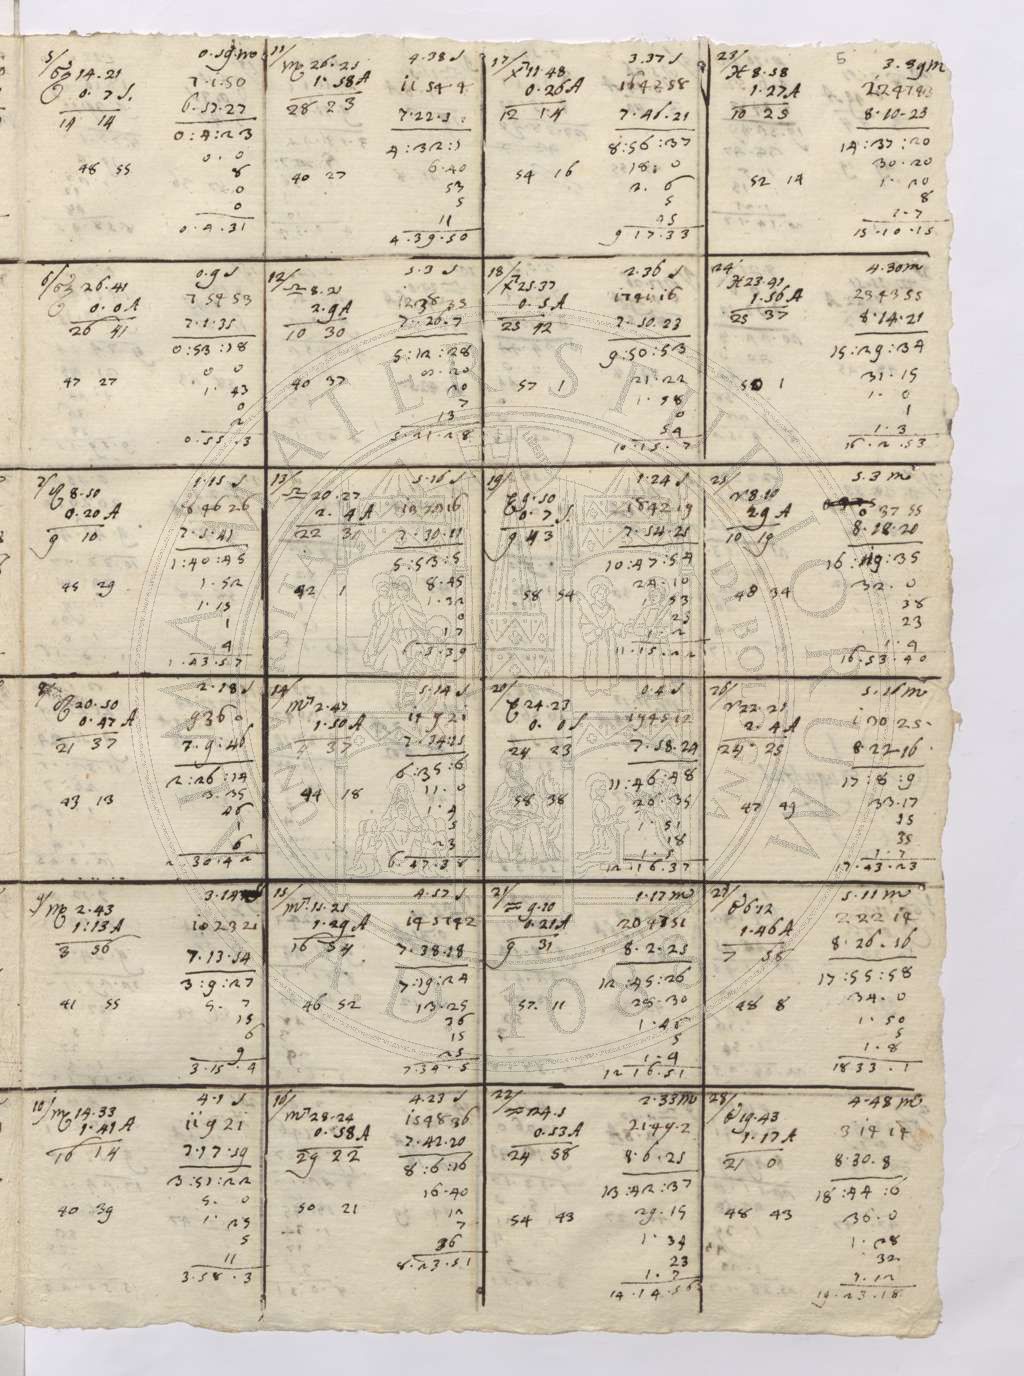 5
5/ 0.59.mo
14.21 7.1.50
0.7 S. 6.57.27
14 14 0:4:23
0.0
48 55 8
0
0
0.4.31
11/ 4.38 S
♏ 26.25 11 54 4
1.58 A 7.22.5
28 23 4:32:
40 27 6.40
53
5
11
4.39.50
17/ 3.37 S
♐ 11.48 16 42 58
0.26 A 7.46.21
12 14 8:56:37
54 16 18.0
2.6
5
25
9 17.33
23/ 3.39 m
♓ 8.58
1.27 A 8.10.23
10 25 14:37:20
52 14 30.20
1.20
8
1.7
15.10.15
6/ 0.9 S
26.41 7 54 53
0.0 A 7.1.35
26 41 0:53:18
47 27 0 0
1.43
0
2
0.55.3
12/ 5.3 S
♎ 8.21 12 38 35
2.9 A 7.26.7
10 30 5:12:28
40 37
20
7
13
5.21.28
18/ 2.36 S
♐ 25.37 17 41 16
0.5 A 7.50.23
25 42 9:50:53
57 1 21.22
1.58
0
54
10.15.7
24/ 4.30 m
♓ 23.41 23 43 55
1.56 A 8.14.21
25 37 15:29:34
50 1 31.15
1.0
1
1.3
16.2.53
7/ 1.15 S
8.50 8 46 26
0.20 A 7.5.41
9 10 1:40:45
45 29 1.52
1.15
1
4
1.43.57
13/ 5.16 S
♎ 20.27
2.4 A 7.30.11
22 31 5:53:5
42 1 8.45
1.32
0
17
6.5.39
19/ 1.24 S
9.50 18 42 19
0.7 S. 7.54.25
9 43 10:47:54
58 54 24.10
53
25
1.2
11.15.22
25/ 5.3 m
♈ 8.10 0 37 55
29 A 8.18.20
10 19 16:19:35
48 34 32.0
38
23
1.4
16.53.40
8/ 2.18 S
20.50 9 36 0
0.47 A 7.9.46
21 37 2:26:14
43 13 3.35
46
1
6
2.30.42
14/ 5.14 S
♏ 2.47 14 9 21
1.50 A 7.34.15
4 37 6:35:6
44 18 11.0
1.4
5
23
6.47.38
20/ 0.4 S
24.23 19 45 12
0.0 S 7.58.24
24 23 11:46:48
58 38 26.35
1.51
18
1.5
12.16.37
26/ 5.16 m
♈ 22.21 1 30 25.
2.4 A 8.22.16
24 25 17:8:9
47 49 33.17
15
35
1.7
17.43.23
9/ 3.14
♍ 2.43 10 23 21
1:13 A 7.13.54
3 56 3:9:27
41 55 5.7
15
6
9
3.15.4
15/ 4.57 S
♏ 15.25 14 57 42
1.29 A 7.38.18
16 54 7:19:24
46 52 13.25
36
15
25
7.34.5
21/ 1.17 m
♒ 9.10 20 48 51
0.21 A 8.2.25
9 31 12:45:26
57. 11 28.30
1.46
5
1.4
12 16.51
27/ 5.11 m
♉ 6.12 2 22 14
1.46 A 8.26.16
7 58 17:55:58
48 8 34.0
1.50
5
1.8
18 33.1
10/ 4.1 S
♍ 14.33 11 9 21
1.41 A 7.17.59
16 14 3:51:22
40 39 5.0
1.25
5
11
3.58.3
16/ 4.23 S
♏ 28.24 15 48 36
0.58 A 7.42.20
29 22 8:6:16
50 21 16.40
12
7
36
8.23.51
22/ 2.33 m
♒ 24.5 21 49.2
0.53 A 8.6.25
24 58 13:42:37
54 43 29.15
1.34
23
1.7
14.14.56
28/ 4.48 m
♉ 19.43 3 14 14
1.17 A 8.30.8
21 0 18:44:6
48 43 36.0
1.28
32
1.12
19.23.18